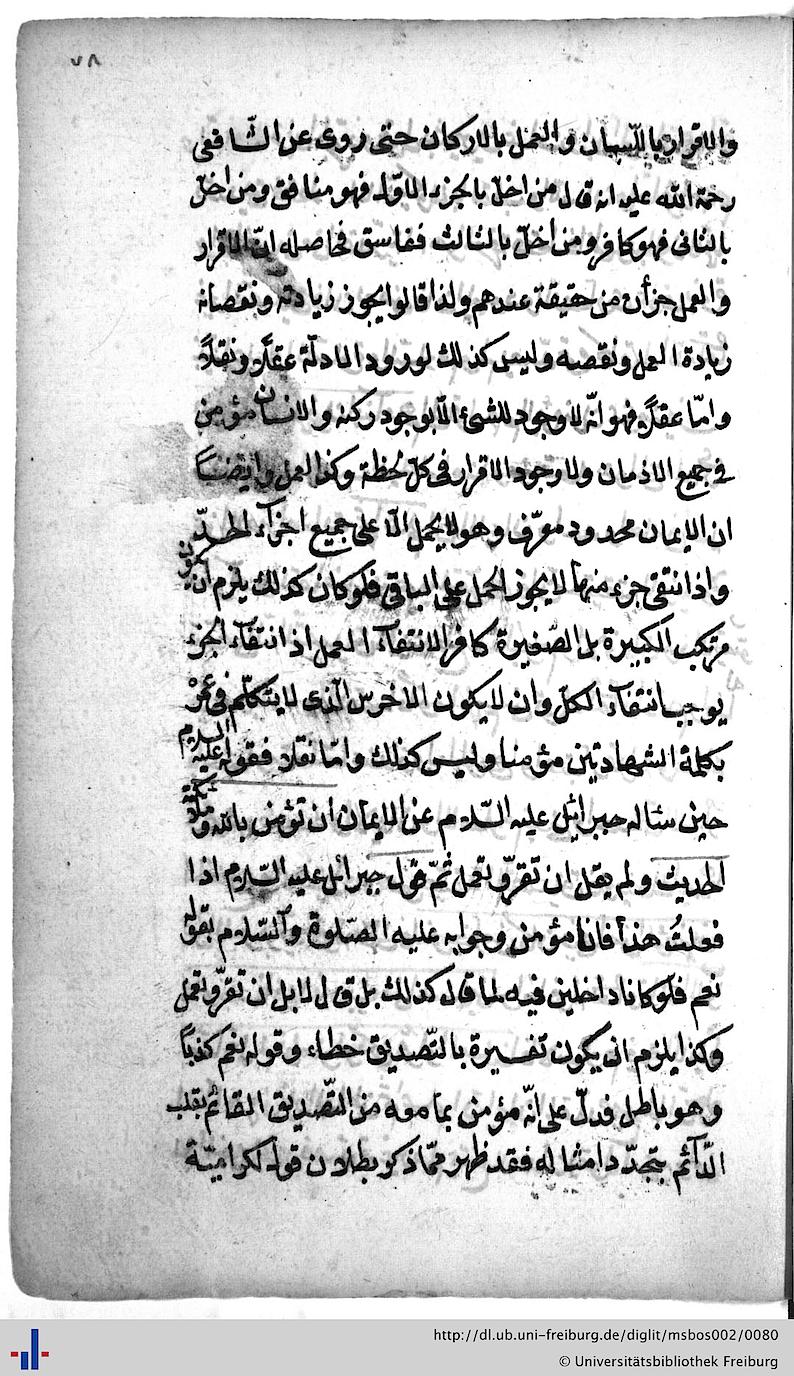 ٧٨
والاقرار باللسان والعمل بالاركان حتى روى عن الشافعى
رحمة الله عليه انه قال من اخلّ بالجزء الاول فهو منافق ومن اخلّ
بالثانى فهو كافر ومن اخلّ بالثالث ففاسق فحاصله انّ الاقرار
والعمل جزأن من حقيقة عندهم ولذا قالوا يجوز زيادته ونقصانه
زيادة العمل ونقصه وليس كذلك لورود الادلّة عقلاً ونقلاً
وامّا عقلاً فهو انّه لا وجود للشئ الّا بوجود ركنه والانسان مؤمن
فى جميع الاذمان ولا وجود الاقرار فى كلّ لحظة وكذا العمل وايضاً
ان الايمان محدود معرّف وهو لا يحمل الّا على جميع اجزآء الحدّ
واذا نتفى جزء منها لا يجوز الحمل على الباقى فلو كان كذلك يلزم ان يكون
مرتكب الكبيرة بل الصّغيرة كافر الانتفآء العمل اذ انتفآء الجزء
يوجب انتفآء الكلّ وان لا يكون الاخرس الّذى لا يتكلّم فى عمره
بكلمة الشهادتين مؤمنا وليس كذلك وامّا نقلا فقوله عليه السلام
حين سئاله جبرائيل عليه السّلام عن الايمان ان تؤمن بالله وملائكته
الحديث ولم يقل ان تقرّ وتعمل ثمّ قول جبرائل عليه السّلام اذا
فعلتُ هذا فانا مؤمن وجوابه عليه الصّلوة والسّلام بقوله
نعم فلو كانا داخلين فيه لما قال كذلك بل قال لا بل ان تقرّ وتعمل
وكذا يلزم ان يكون تفسيرة بالتّصديق خطاء وقوله نعم كذباً
وهو باطل فدلّ على انّه مؤمن بما معه من التّصديق القائم بقلب
الدّآئم بتجدّد امثاله فقد ظهر ممّا ذكر بطلان قول الكراميّة
http://dl.ub.uni-freiburg.de/diglit/msbos002/0080
© Universitätsbibliothek Freiburg